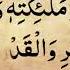 مَلَٰٓئِكَتِهِۦ
رِ وَالْقَدْ